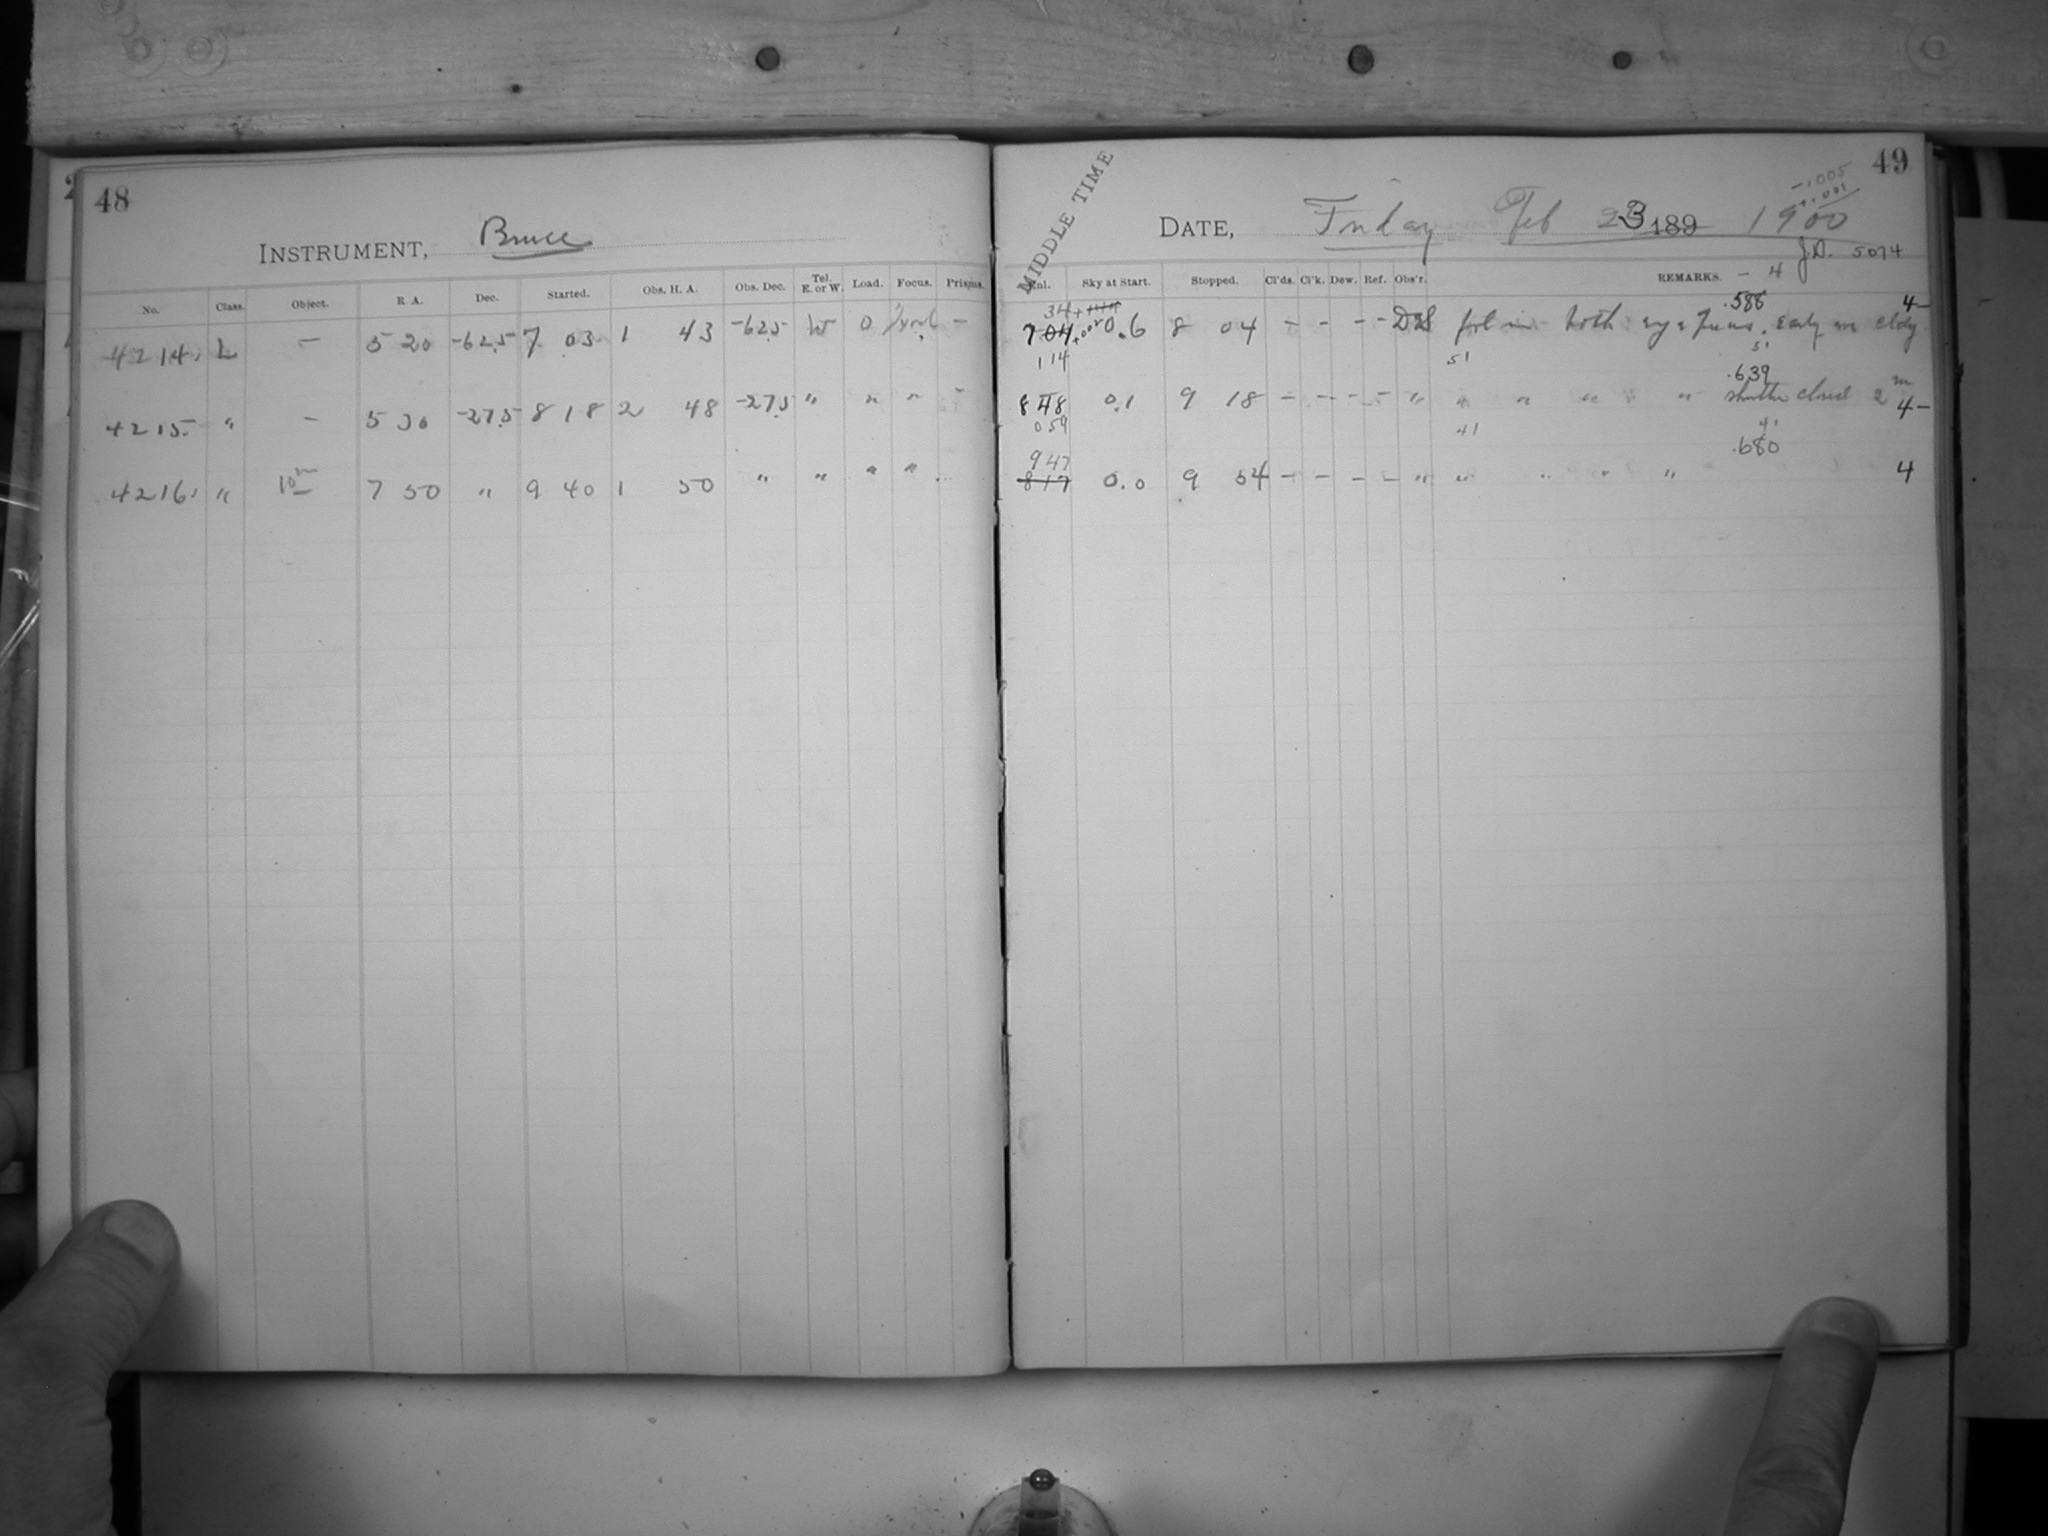 48
INSTRUMENT, Bruce
No. Class. Object. R. A. Dec. Started. Obs. H. A. Obs. Dec. Tel. E. or W. Load. Focus. Prisms.
4214. L — 5 20 -62.5 7 03 1 43 -62.5 W 0 —
4215. " — 5 30 -27.5 8 18 2 48 -27.5 " " " —
4216. " 10m 7 50 " 9 40 1 50 " " " "
49
MIDDLE TIME
-.005
+.001
DATE, Friday Feb 23 189 1900
J.D. 5074
Enl. Sky at Start. Stopped. Cl'ds. Cl'k. Dew. Ref. Obs'r. REMARKS. - 4
34 + .588 4-
7 04 +.002 0.6 8 04 - - - - fol in both Early eve cldy
1 14 51 51
.639
8 48 0.1 9 18 - - - - " " " " " shutter closed 2 m 4-
0 59 41 41
9 47 .680
8 17 0.0 9 54 - - - - " " " " " 4